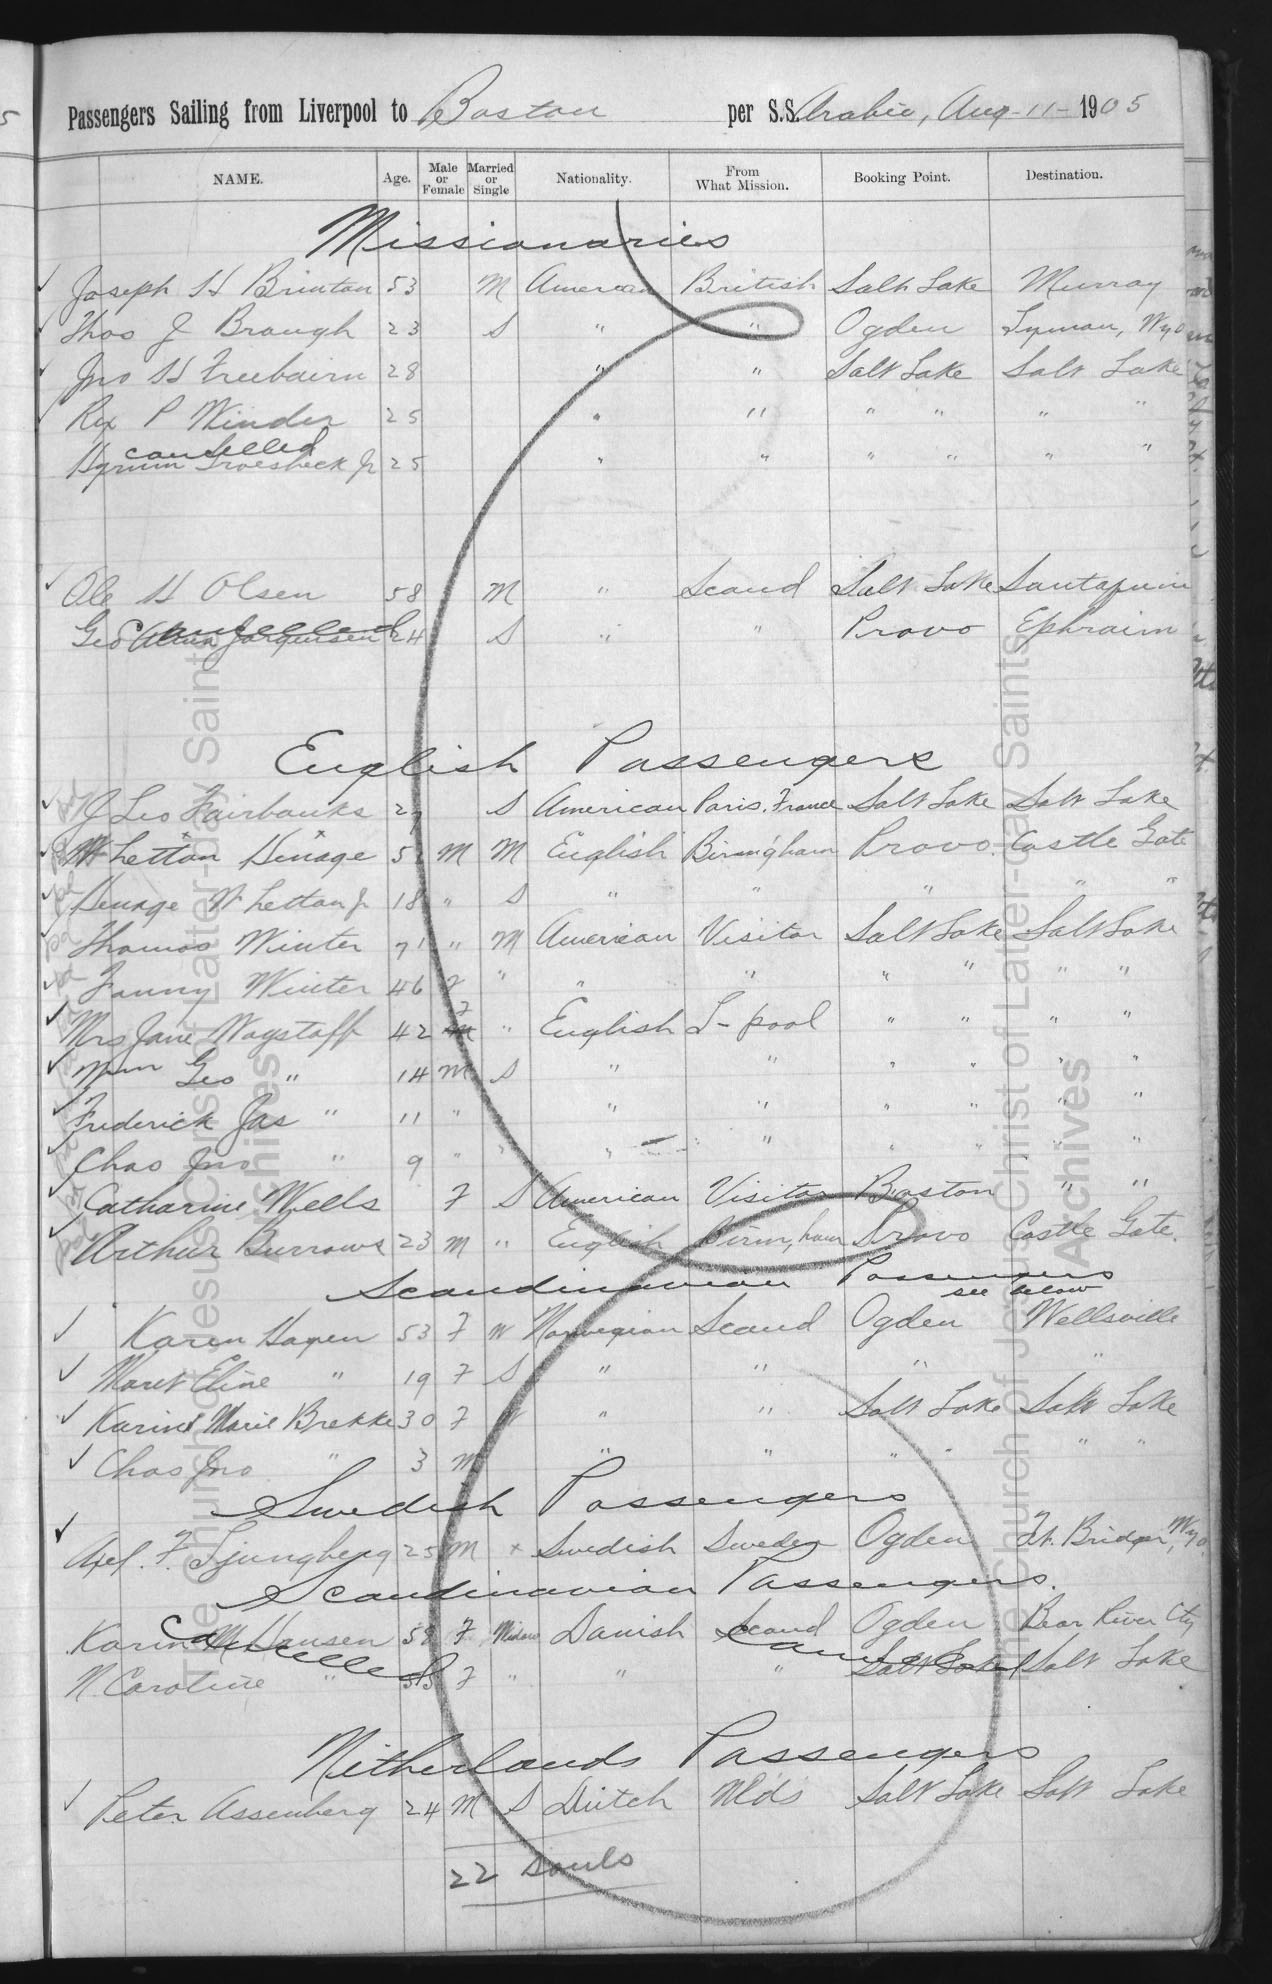 Passengers Sailing from Liverpool to Boston per S.S. Arabic, Aug-11-1905
NAME. Age. Male or Female Married or Single Nationality. From What Mission. Booking Point. Destination.
Missionaries
Joseph H Brinton 53 M American British Salt Lake Murray
Thos J Brough 23 S " " Ogden Lyman, Wyo
Jno H Freebairn 28 " " Salt Lake Salt Lake
Rex P Winder 25 " " " " " "
cancelled
Hyrum Groesbeck Jr 25 " " " " " "
Ole H Olsen 58 M " Scand Salt Lake Santaquin
cancelled
Geo Alma Jorgensen 24 S " " Provo Ephraim
English Passengers
J Leo Fairbanks 27 S American Paris. France Salt Lake Salt Lake
Whetton Denage 51 M M English Birmingham Provo. Castle Gate
Denage Whetton Jr 18 " S " " " " "
Thomas Winter 71 " M American Visitor Salt Lake Salt Lake
Fanny Winter 46 F " " " " " " "
Mrs Jane Wagstaff 42 F " English L-pool " " " "
Wm Geo " 14 M S " " " " " "
Frederick Jas " 11 " " " " " " "
Chas Jno " 9 " " " " " " " "
Catharine Wells F S American Visitor Boston " "
Arthur Burrows 23 M " English Birm,ham Provo Castle Gate.
Scandinavian Passengers
see below
Karen Hagen 53 F W Norwegian Scand Ogden Wellsville
Maret Eline " 19 F S " " " "
Karine Marie Brekke 30 F W " " Salt Lake Salt Lake
Chas Jno " 3 M " " " " " "
Swedish Passengers
Axel. F. Ljungberg 25 M + Swedish Sweden Ogden Ft. Bridger, Wyo.
Scandinavian Passengers.
Karin M Hansen 58 F Widow Danish Scand Ogden Bear River City
cancelled cancelled
N. Caroline " F " " " Salt Lake Salt Lake
Nitherlands Passengers
Peter Assenberg 24 M S Dutch Nlds Salt Lake Salt Lake
22 Souls
The Church of Jesus Christ of Latter-day Saints
Archives
The Church of Jesus Christ of Latter-day Saints
Archives